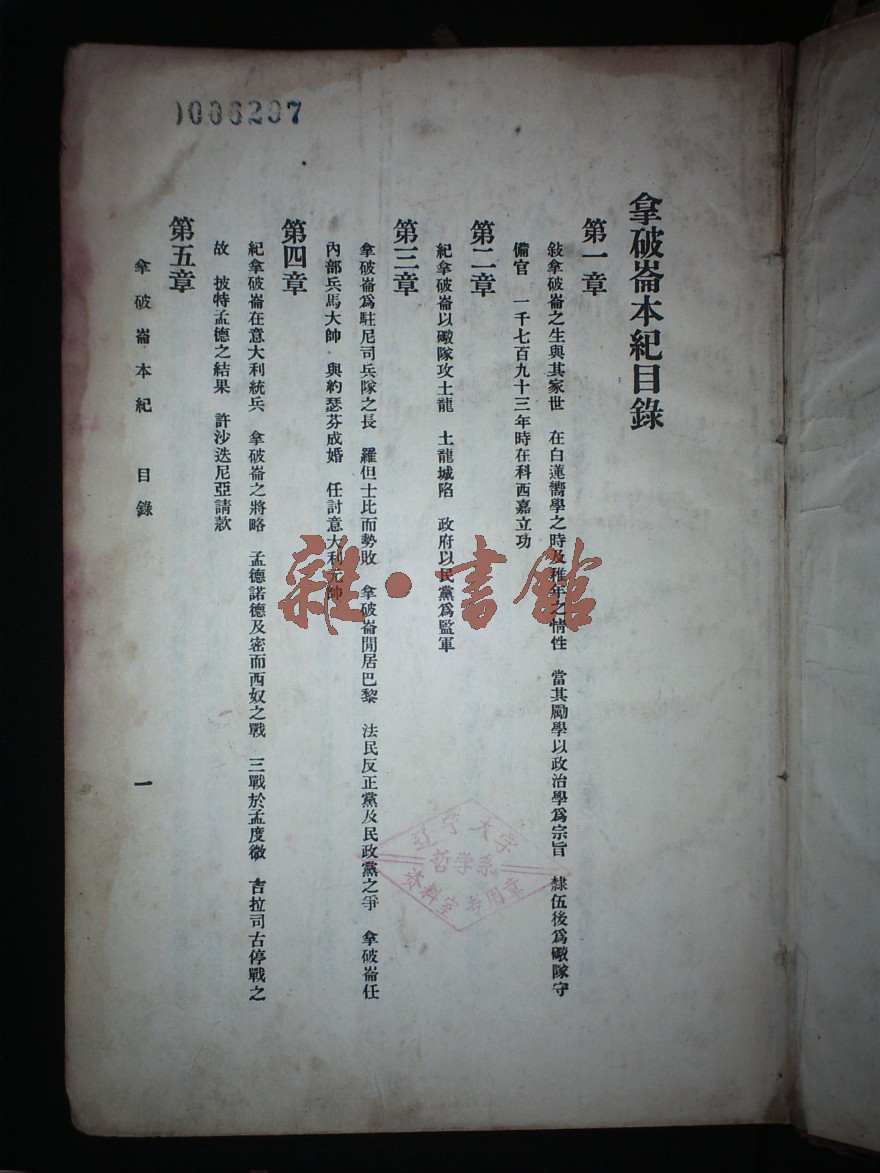 0006297
拿破崙本紀目錄
第一章
敍拿破崙之生與其家世 在白蓮嚮學之時及稚年之情性 當其勵學以政治學爲宗旨 隸伍後爲礮隊守
備官 一千七百九十三年時在科西嘉立功
第二章
紀拿破崙以礮隊攻土龍 土龍城陷 政府以民黨爲監軍
第三章
拿破崙爲駐尼司兵隊之長 羅但士比而勢敗 拿破崙閒居巴黎 法民反正黨及民政黨之爭 拿破崙任
內部兵馬大帥 與約瑟芬成婚 任討意大利元帥
第四章
紀拿破崙在意大利統兵 拿破崙之將略 孟德諾德及密而西奴之戰 三戰於孟度微 吉拉司古停戰之
故 披特孟德之結果 許沙迭尼亞請款
第五章
拿破崙本紀 目錄
一
雜·書館
辽宁大学
哲学系
资料室专用章